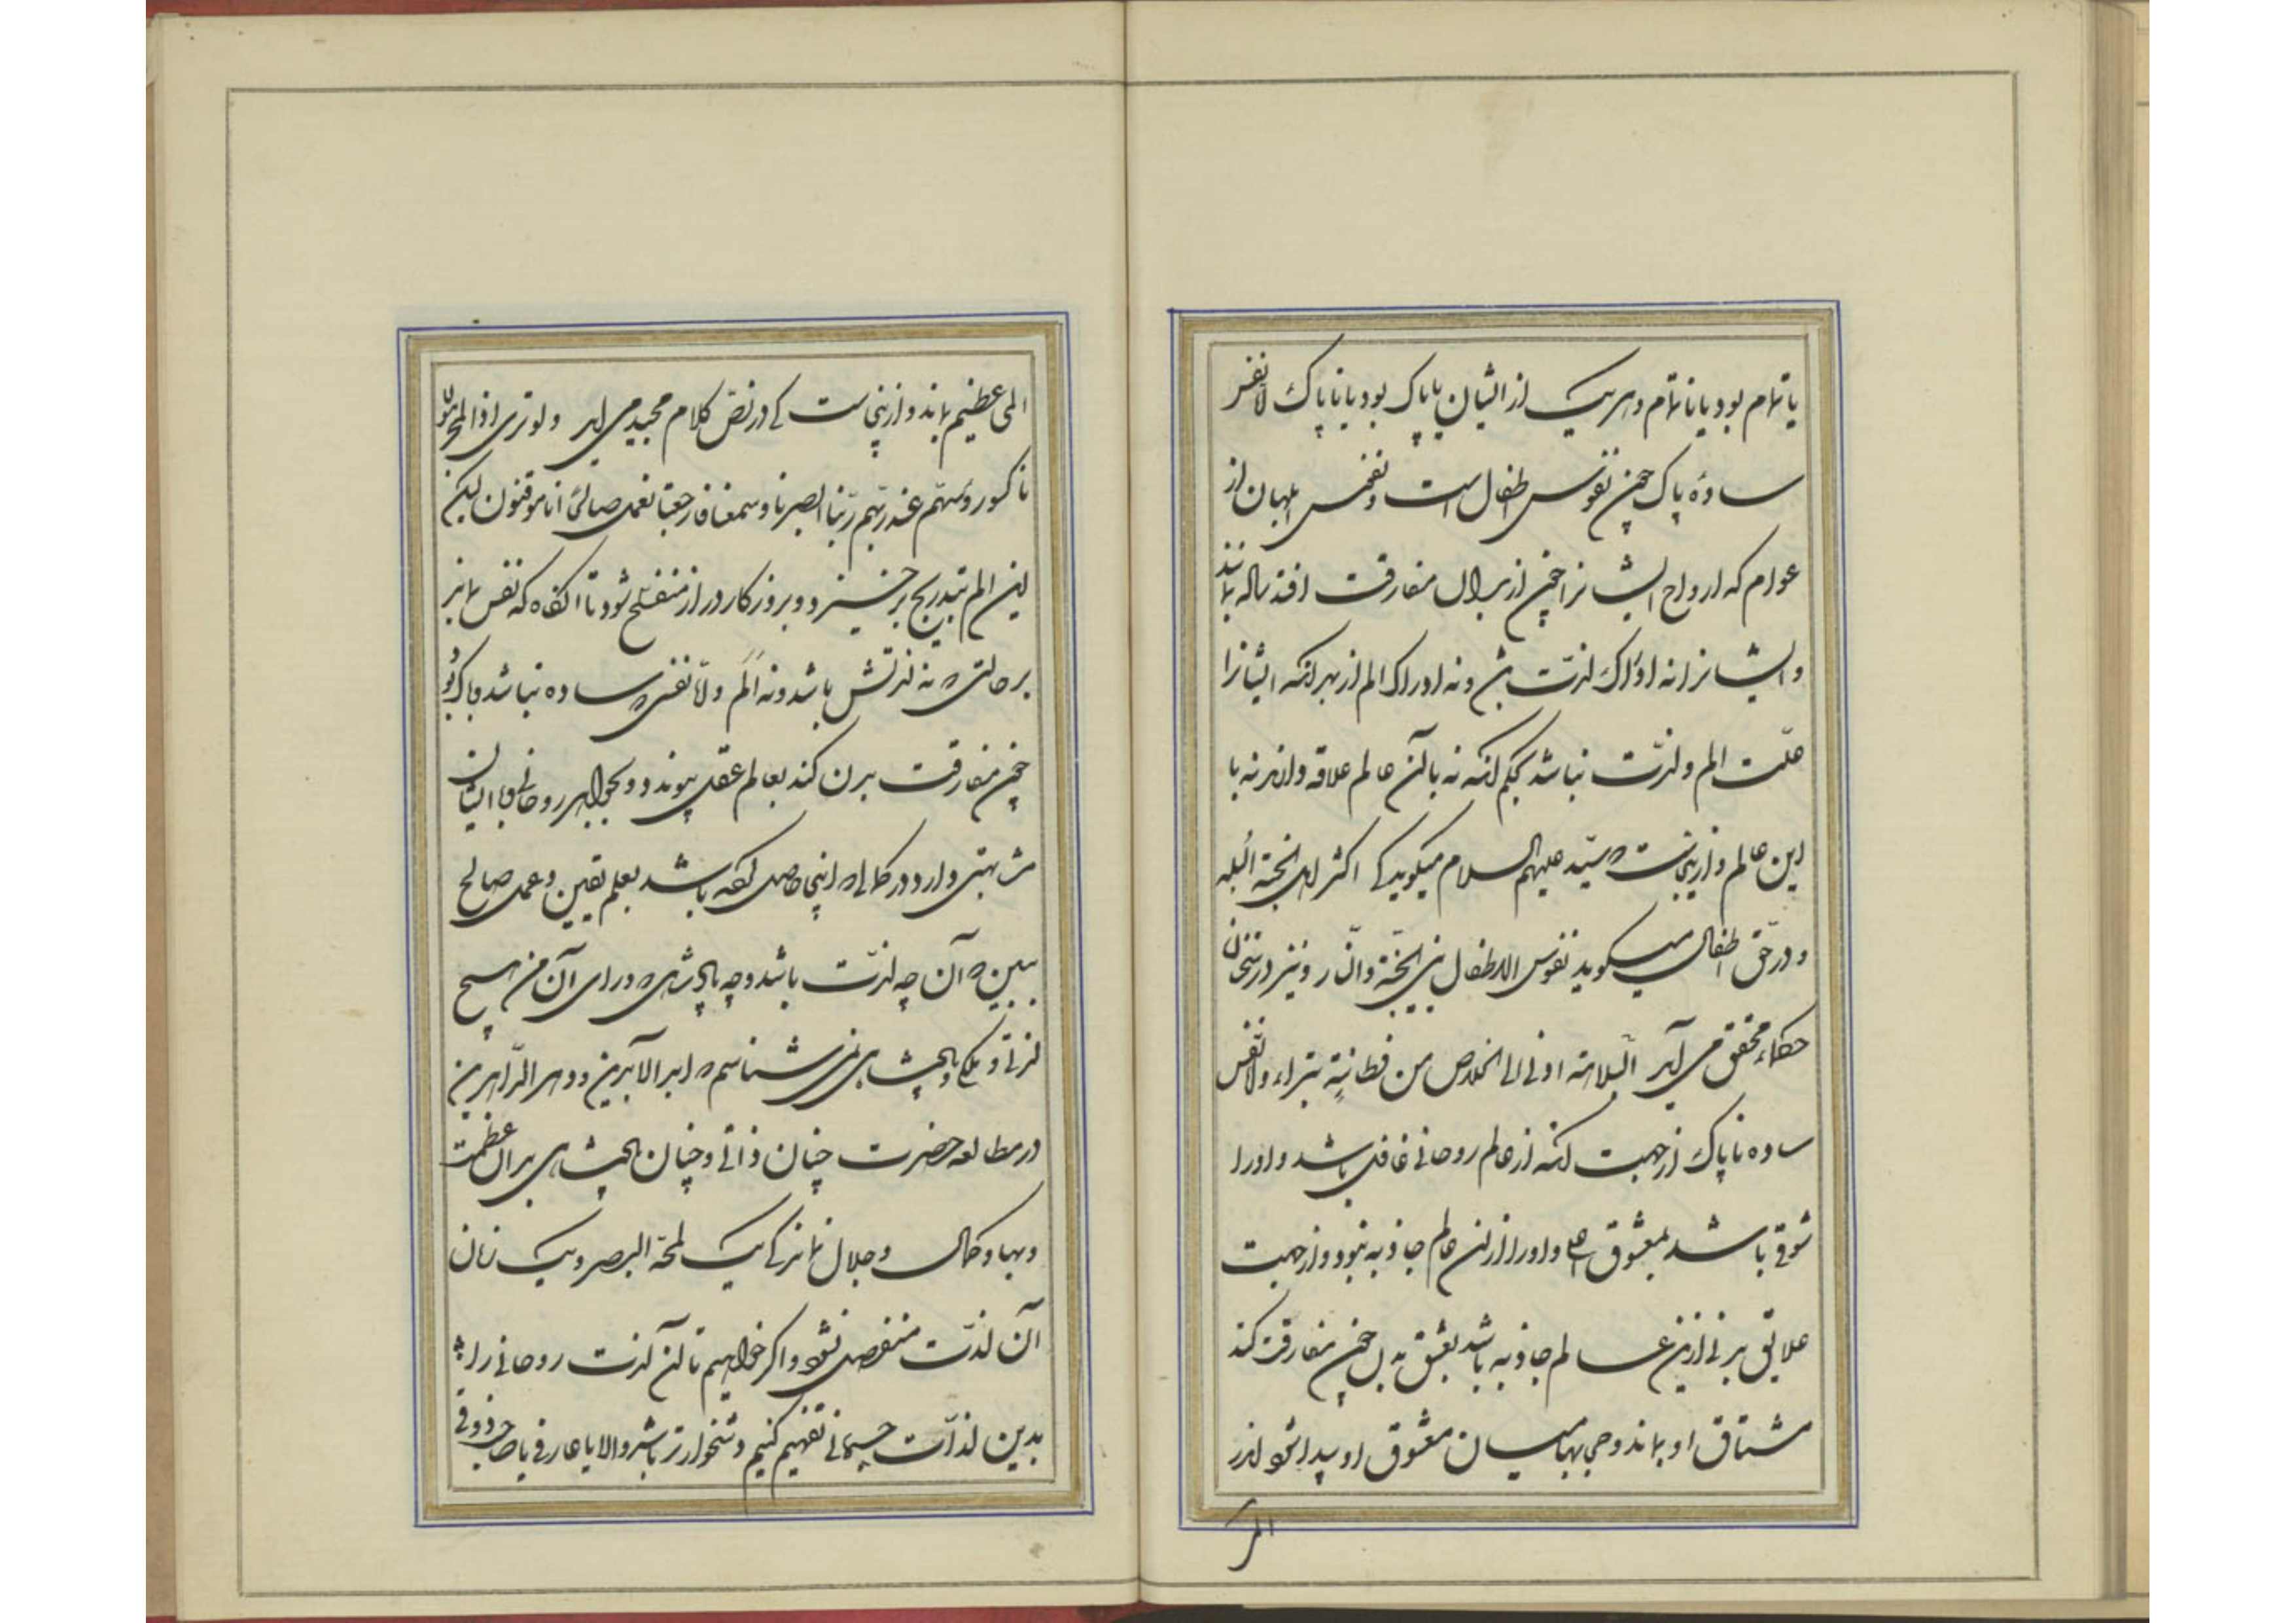 یا تمام بود یا ناتمام و هر یک از ایشان یا پاک بود یا ناپاک لانفس
سادهٔ پاک چون نفوس طفل است و نفس ابلهان از
عوام که ارواح ایشانرا چون از بدان مفارقت افتد ساله بمانند
و ایشانرا نه ادراک لذت بش و نه ادراک الم از بهر آنکه ایشانرا
علت الم و لذت نباشد بحکم آنکه نه با آن عالم علاقه دارند نه با
این عالم و ازینجاست که سید علیهم السلام میگوید که اکثر اهل الجنة البله
و در حق اطفال میگوید نفوس الاطفال بین الجنة و النار و نیز در سخنان
حکماء محقق می آید البلاهة ادنی الی الخلاص من فطانة بتراء و لانفس
ساده ناپاک از جهت آنکه از عالم روحانی غافل باشد و او را
شوقی باشد بمعشوق اعلی و او را از آن عالم جاذبه نبود و از جهت
علایق بدنی ازین عالم جاذبه باشد بعشق بدن چون مفارقت کند
مشتاق او بماند و حجابها میان معشوق او پیدا شود اندر
المی
المی عظیم بماند و ازینجاست که در نص کلام مجید می آید و لو تری اذ المجرمون
ناکسوا رؤسهم عند ربهم ربنا ابصرنا و سمعنا فارجعنا نعمل صالحا انا موقنون لیکن
این الم بتدریج برخیزد و بروزگار دراز منفسخ شود تا آنگاه که نفس بماند
بر حالتی که نه لذتش باشد و نه الم و لا نفسی که ساده نباشد و پاک بود
چون مفارقت بدن کند بعالم عقل پیوندد و بجواهر روحانی و با ایشان
مشابهتی دارد در کمالی که اینجا حاصل کرده باشد بعلم یقین و عمل صالح
ببین که آن چه لذت باشد و چه پادشاهی که ورای آن من هیچ
لذتی و ملکی و پادشاهی نمی شناسم که ابد الآبدین و دهر الداهرین
در مطالعه حضرت چنان ذاتی و چنان پادشاهی بدان عظمت
و بها و کمال و جلال بماند که یک لمحة البصر و یک زمان
آن لذت منفصل نشود و اگر خواهیم تا آن لذت روحانی را
بدین لذات جسمانی تفهیم کنیم دشخوارتر باشد و الا با عارفی یا صاحب ذوقی